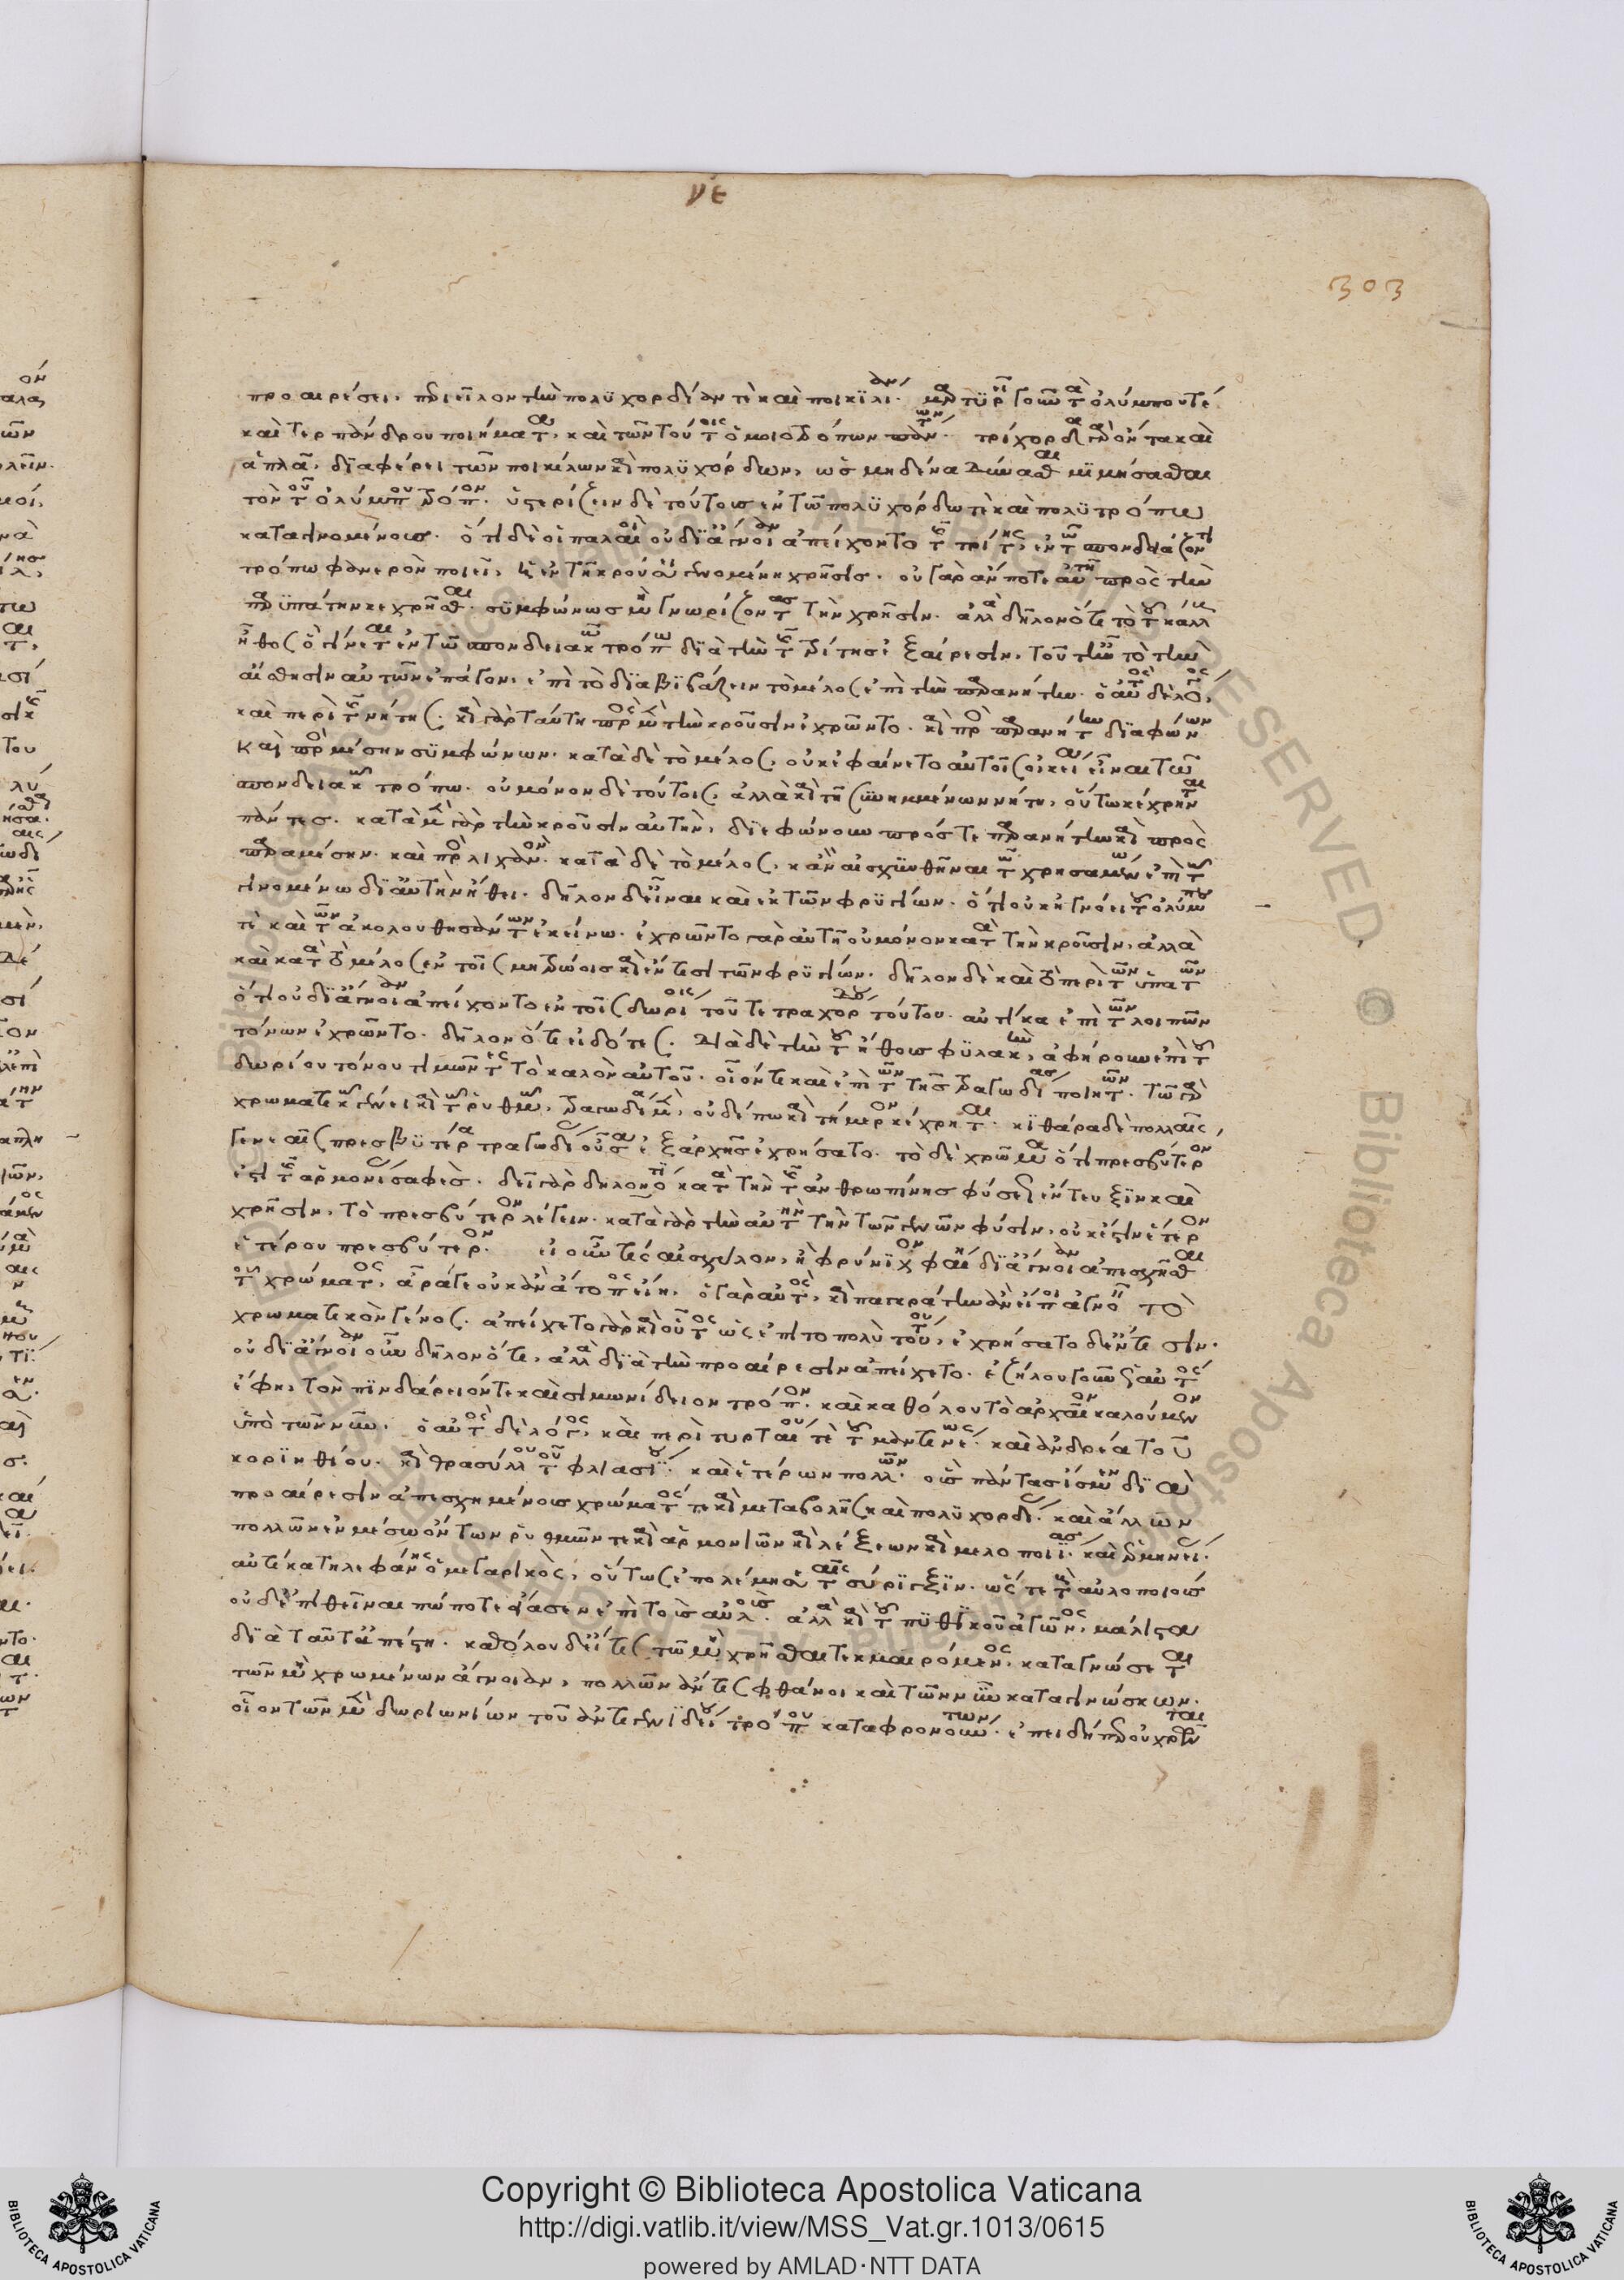 νε
303
προαιρέσει, περιεῖλον τὴν πολυχορδίαν τὲ καὶ ποικιλίαν. μαρτυρεῖ γοῦν τὰ ὀλύμπου τέ
καὶ τερπάνδρου ποιήματα, καὶ τῶν τούτοις ὁμοιοτρόπων πάντων. τρίχορδα γὰρ ὄντα καὶ
ἁπλᾶ, διαφέρει τῶν ποικίλων καὶ πολυχόρδων, ὡς μηδένα δύνασθαι μιμήσασθαι
τὸν τοῦ ὀλύμπου τρόπον. ὑστερίζειν δὲ τούτους ἐν τῶ πολυχόρδω τὲ καὶ πολυτρόπω
καταγινομένους. ὅτι δὲ οἱ παλαιοὶ οὐ δι' ἄγνοιαν ἀπείχοντο τῆς τρίτης, ἐν τῶ σπονδειάζοντι
τρόπω φανερὸν ποιεῖ, ἡ ἐν τῆ κρούσει γινομένη χρῆσις. οὐ γὰρ ἄν ποτε αὐτῆ πρὸς τὴν
παρυπάτην κεχρῆσθαι συμφώνως μὴ γνωρίζοντας τὴν χρῆσιν. ἀλλὰ δῆλον ὅτι τὸ τοῦ κάλλους
ἦθος ὃ γίνεται ἐν τῶ σπονδειακῶ τρόπω διὰ τὴν τῆς τρίτης ἐξαίρεσιν, τοῦτ' ἦν τὸ τὴν
αἴσθησιν αὐτῶν ἐπάγον, ἐπὶ τὸ διαβιβάζειν τὸ μέλος ἐπὶ τὴν παρανήτην. ὁ αὐτὸς δὲ λόγος,
καὶ περὶ τῆς νήτης. καὶ γὰρ ταύτη πρὸς μὲν τὴν κροῦσιν ἐχρῶντο. καὶ πρὸς παρανήτην διαφώνων
καὶ πρὸς μέσην συμφώνων. κατὰ δὲ τὸ μέλος, οὐκ ἐφαίνετο αὐτοῖς οἰκεία εἶναι τῶ
σπονδειακῶ τρόπω. οὐ μόνον δὲ τούτοις, ἀλλὰ καὶ τῆ συνημμένων νήτη, οὕτω κέχρηνται
πάντες. κατὰ μὲν γὰρ τὴν κροῦσιν αὐτὴν, διεφώνουν πρός τε παρανήτην καὶ πρὸς
παραμέσην. καὶ πρὸς λιχανόν. κατὰ δὲ τὸ μέλος, κἂν αἰσχυνθῆναι τῶ χρησαμένω ἐπὶ τῶ
γινομένω δι' αὐτὴν ἤθει. δῆλον δ' εἶναι καὶ ἐκ τῶν φρυγίων. ὅτι οὐκ ἠγνόει τοῦ ὀλύμπου
τὲ καὶ τῶν ἀκολουθησάντων ἐκείνω. ἐχρῶντο γὰρ αὐτῆ οὐ μόνον κατὰ τὴν κροῦσιν, ἀλλὰ
καὶ κατὰ τὸ μέλος ἐν τοῖς μητρώοις καὶ ἔν τισι τῶν φρυγίων. δῆλον δὲ καὶ τὸ περὶ τῶν ὑπατῶν
ὅτι οὐ δι' ἄγνοιαν ἀπείχοντο ἐν τοῖς δωρίοις τοῦ τετραχόρδου τούτου. αὐτίκα ἐπὶ τῶν λοιπῶν
τόνων ἐχρῶντο. δηλονότι εἰδότες. διὰ δὲ τὴν τοῦ ἤθους φυλακὴν, ἀφήρουν ἐπὶ τοῦ
δωρίου τόνου τιμῶντες τὸ καλὸν αὐτοῦ. οἷόν τε καὶ ἐπὶ τῶν τῆς τραγωδίας ποιητῶν. τῶ γὰρ
χρωματικῶ γένει καὶ τῶ ῥυθμῶ, τραγωδία μὲν, οὐδέπω καὶ τήμερον κέχρηται. κιθάρα δὲ πολλαῖς,
γενεαῖς πρεσβυτέρα τραγωδίας οὖσα ἐξ ἀρχῆς ἐχρήσατο. τὸ δὲ χρῶμα ὅτι πρεσβύτερον
ἐστὶ τῆς ἁρμονίας σαφές. δεῖ γὰρ δηλονότι κατὰ τὴν τῆς ἀνθρωπίνης φύσεως ἔντευξιν καὶ
χρῆσιν, τὸ πρεσβύτερον λέγειν. κατὰ γὰρ τὴν αὐτὴν τὴν τῶν γενῶν φύσιν, οὐκ ἔστιν ἕτερον
ἑτέρου πρεσβύτερον. εἰ οὖν τίς αἰσχύλον, ἢ φρύνιχον φαίη δι' ἄγνοιαν ἀπεσχῆσθαι
τοῦ χρώματος, ἆρά γε οὐκ ἂν ἄτοπος εἴη. ὁ γὰρ αὐτὸς, καὶ παγκράτην ἂν εἴποι ἀγνοεῖν τὸ
χρωματικὸν γένος. ἀπείχετο γὰρ καὶ οὗτος ὡς ἐπὶ τὸ πολὺ τούτου, ἐχρήσατο δ' ἔν τισιν.
οὐ δι' ἄγνοιαν οὖν δηλονότι, ἀλλὰ διὰ τὴν προαίρεσιν ἀπείχετο. ἐζήλου γοῦν ὡς αὐτός
ἔφη, τὸν πινδάρειόν τε καὶ σιμωνίδειον τρόπον. καὶ καθόλου τὸ ἀρχαῖον καλούμενον
ὑπὸ τῶν νῦν. ὁ αὐτὸς δὲ λόγος, καὶ περὶ τυρταίου τὲ τοῦ μαντινέως. καὶ ἀνδρέα τοῦ
κορινθίου. καὶ θρασύλλου τοῦ φλιασίου. καὶ ἑτέρων πολλῶν. οὓς πάντας ἴσμεν διὰ
προαίρεσιν ἀπεσχημένους χρώματός τε καὶ μεταβολῆς καὶ πολυχορδίας. καὶ ἄλλων
πολλῶν ἐν μέσω ὄντων ῥυθμῶν τε καὶ ἁρμονιῶν καὶ λέξεων καὶ μελοποιίας. καὶ ἑρμηνείας.
αὐτίκα τηλεφάνης ὁ μεγαρικὸς, οὕτως ἐπολέμησε ταῖς σύριγξιν. ὥστε τοὺς αὐλοποιοὺς
οὐδ' ἐπιθεῖναι πώποτε εἴασεν ἐπὶ τοὺς αὐλούς. ἀλλὰ καὶ τοῦ πυθικοῦ ἀγῶνος, μάλιστα
διὰ ταῦτ' ἀπέστη. καθόλου δ' εἴ τις τῶ μὴ χρῆσθαι τεκμαιρόμενος, καταγνώσεται
τῶν μὴ χρωμένων ἄγνοιαν, πολλῶν ἄν τις φθάνοι καὶ τῶν νῦν καταγινώσκων.
οἷον τῶν μὲν δωριωνίων τοῦ ἀντιγενιδείου τρόπου καταφρονούντων. ἐπειδήπερ οὐ χρῶνται
RESERVED © Biblioteca Apostolica Vaticana
Copyright © Biblioteca Apostolica Vaticana
http://digi.vatlib.it/view/MSS_Vat.gr.1013/0615
powered by AMLAD·NTT DATA
BIBLIOTECA APOSTOLICA VATICANA
BIBLIOTECA APOSTOLICA VATICANA